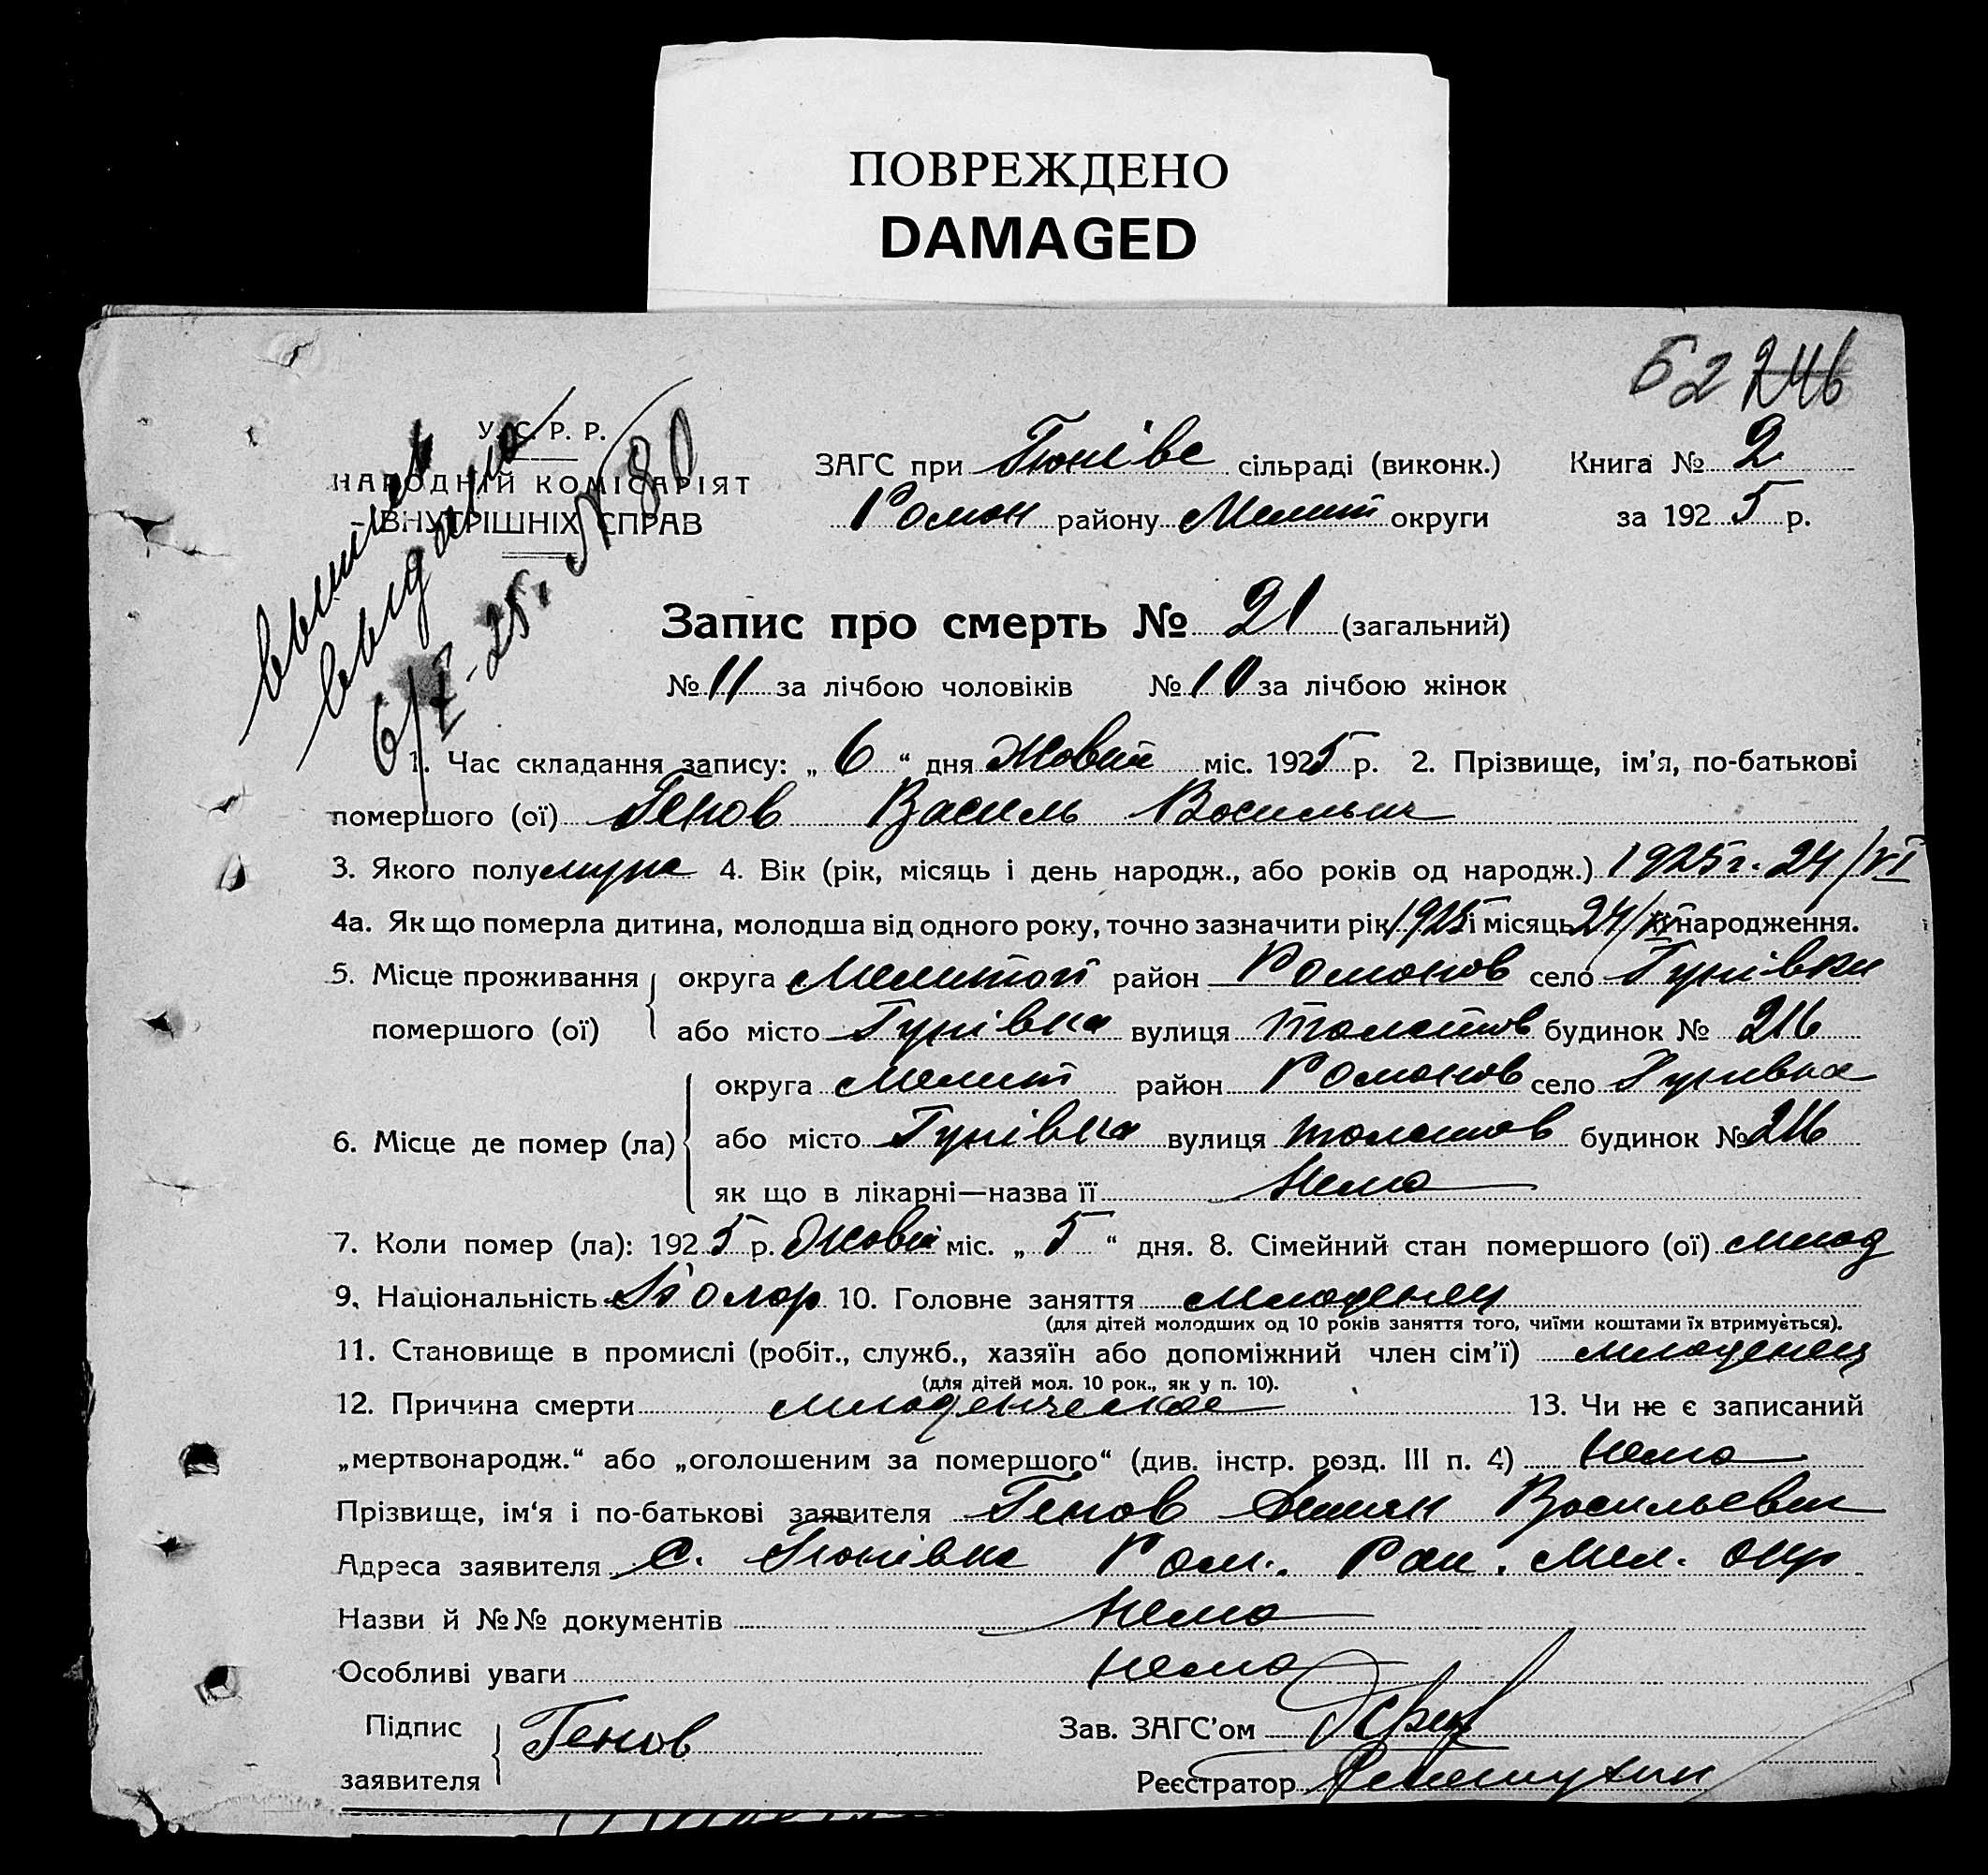 ПОВРЕЖДЕНО
DAMAGED
52 246
У. С. Р. Р.
НАРОДНІЙ КОМІСАРІЯТ
ВНУТРІШНІХ СПРАВ
выдана
6/X-25. № 80
ЗАГС при Гюнівс сільраді (виконк.) Книга № 2
Ромон району Мелит округи за 1925 р.
Запис про смерть № 21 (загальний)
№ 11 за лічбою чоловіків № 10 за лічбою жінок
1. Час складання запису: „ 6 “ дня Жовтн міс. 1925 р. 2. Прізвище, ім'я, по-батькові
помершого (ої) Генов Василь Васильич
3. Якого полу мужс 4. Вік (рік, місяць і день народж., або років од народж.) 1925 г. 24/VI
4а. Як що померла дитина, молодша від одного року, точно зазначити рік 1925 і місяць 24/VI народження.
5. Місце проживання округа Мелитоп район Ромонов село Гунівки
помершого (ої) або місто Гунівка вулиця Толстов будинок № 216
округа Мелит район Ромонов село Гунивка
6. Місце де помер (ла) або місто Гунівка вулиця Толстов будинок № 216
як що в лікарні—назва її Нема
7. Коли помер (ла): 1925 р. Жовтн міс. „ 5 “ дня. 8. Сімейний стан помершого (ої) млад
9. Національність Болгар 10. Головне заняття младенец
(для дітей молодших од 10 років заняття того, чиїми коштами їх втримується).
11. Становище в промислі (робіт., служб., хазяїн або допоміжний член сім'ї) младенец
(для дітей мол. 10 рок., як у п. 10).
12. Причина смерти младенческае 13. Чи не є записаний
„мертвонародж.“ або „оголошеним за помершого“ (див. інстр. розд. III п. 4) нема
Прізвище, ім'я і по-батькові заявителя Генов Васильевич
Адреса заявителя С. Гюнівка Ром. Рай. Мел. окр
Назви й №№ документів нема
Особливі уваги нема
Підпис Генов Зав. ЗАГС'ом
заявителя Реєстратор